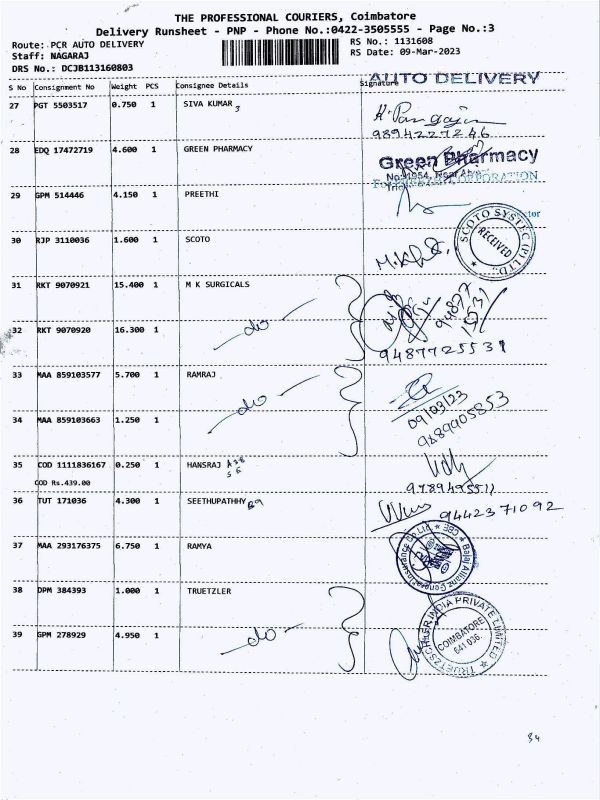 THE PROFESSIONAL COURIERS, Coimbatore
Delivery Runsheet - PNP - Phone No.:0422-3505555 - Page No.:3
Route: PCR AUTO DELIVERY RS No.: 1131608
Staff: NAGARAJ RS Date: 09-Mar-2023
DRS No.: DCJB113160803
AUTO DELIVERY
S No Consignment No Weight PCS Consignee Details Signature
27 PGT 5503517 0.750 1 SIVA KUMAR 3
9894227246
28 EDQ 17472719 4.600 1 GREEN PHARMACY
Green Pharmacy
CORPORATION
29 GPM 514446 4.150 1 PREETHI
30 RJP 3110036 1.600 1 SCOTO
SCOTO SYSTEC (P) LTD.
RECEIVED
31 RKT 9070921 15.400 1 M K SURGICALS
do
32 RKT 9070920 16.300 1
9487725531
33 MAA 859103577 5.700 1 RAMRAJ
do
09/03/23
9889905853
34 MAA 859103663 1.250 1
35 COD 1111836167 0.250 1 HANSRAJ
COD Rs.439.00
9789495511
36 TUT 171036 4.300 1 SEETHUPATHHY B9
9442371092
37 MAA 293176375 6.750 1 RAMYA
Bajaj Allianz General Insurance Co Ltd * CBE *
38 DPM 384393 1.000 1 TRUETZLER
39 GPM 278929 4.950 1
do
INDIA PRIVATE LIMITED
COIMBATORE
641 036
34